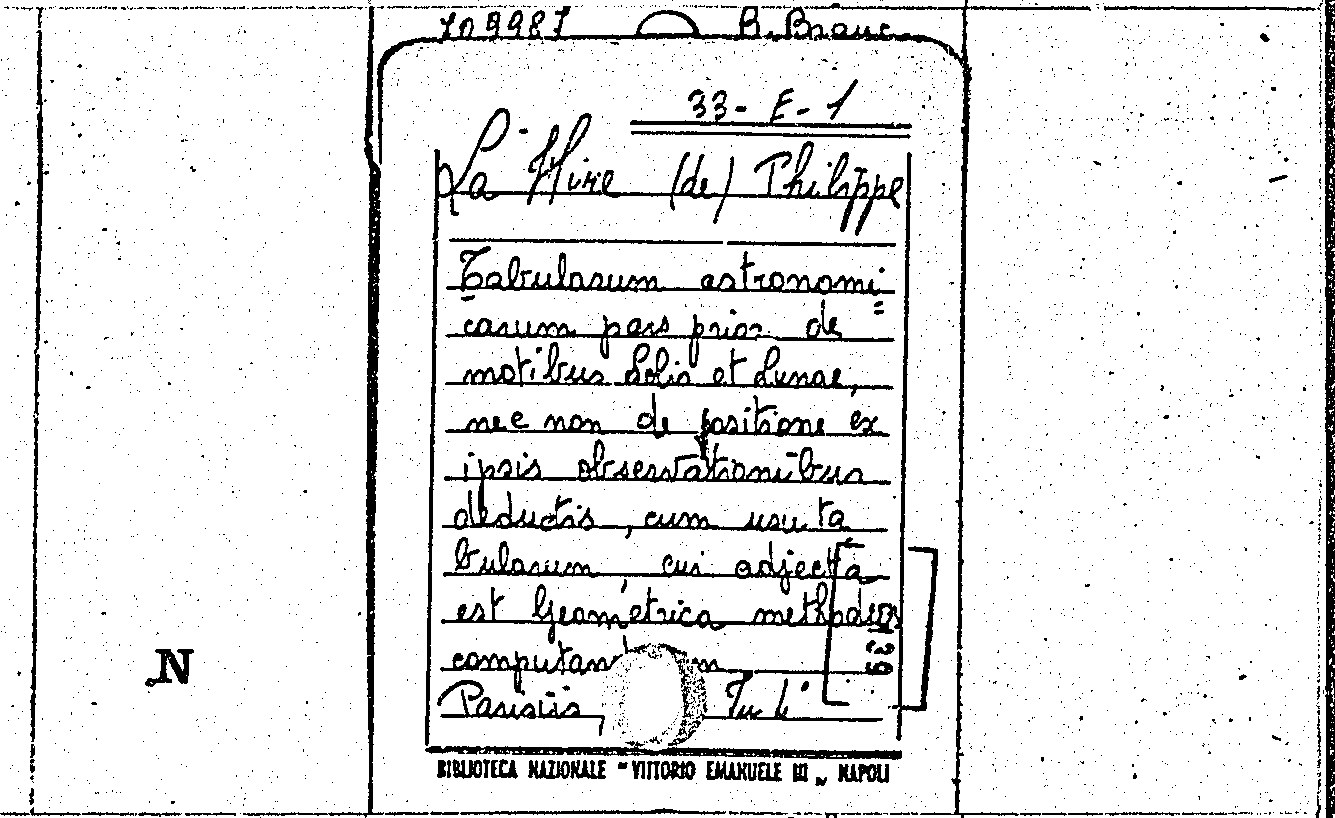 709987 B. Branc.
33-E-1
La Hire (de) Philippe
Tabularum astronomi=
carum pars prior de
motibus Solis et Lunae,
nec non de positione ex
ipsis observationibus
deductis, cum usu ta
bularum, cui adjecta
est Geometrica methodus
computan
Parisiis
139
N
BIBLIOTECA NAZIONALE "VITTORIO EMANUELE III„ NAPOLI